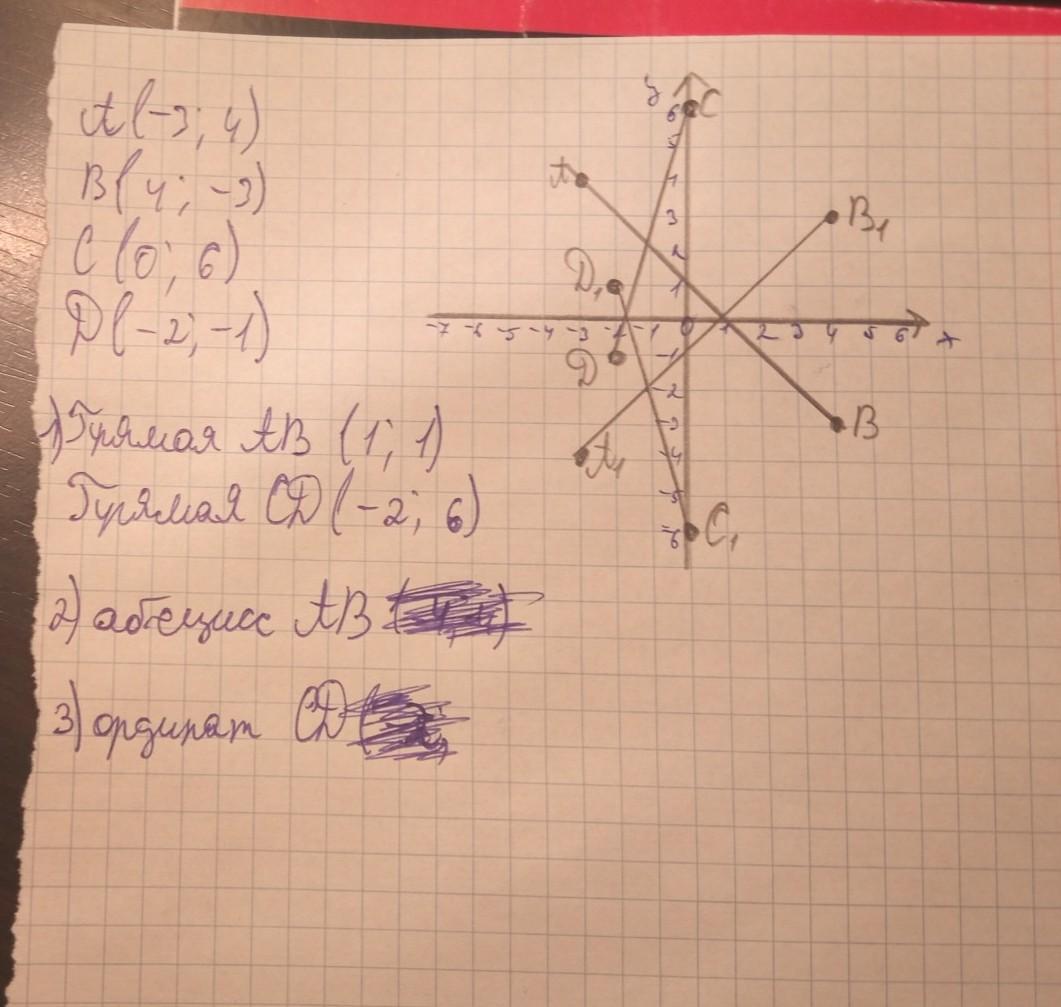 A(-3; 4)
B(4; -3)
C(0; 6)
D(-2; -1)
1) Прямая AB (1; 1)
Прямая CD (-2; 6)
2) абсцисс AB
3) ординат CD
y
6 C
5
A 4
3 B₁
2
D₁ 1
-7 -6 -5 -4 -3 -2 -1 0 1 2 3 4 5 6 x
D -1
-2
-3 B
A₁ -4
-5
-6 C₁